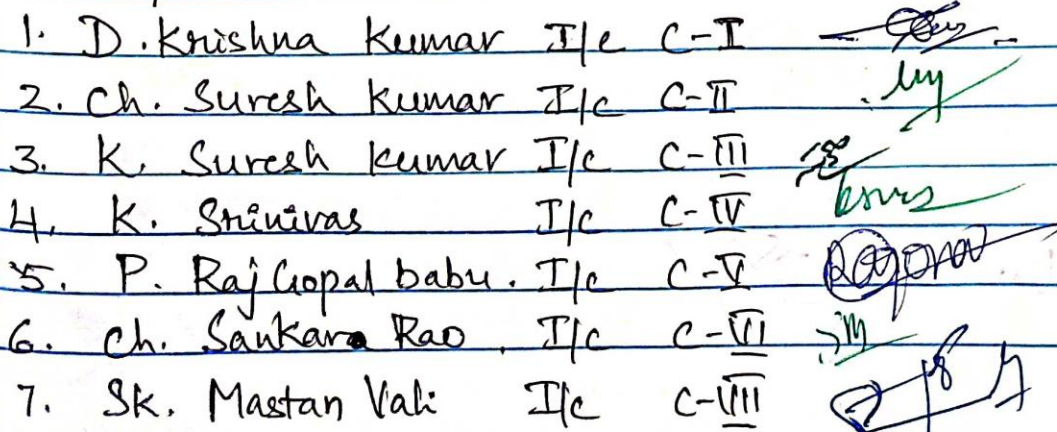 1. D. Krishna Kumar I/c C-I
2. Ch. Suresh Kumar I/c C-II
3. K. Suresh Kumar I/c C-III
4. K. Srinivas I/c C-IV
5. P. Raj Gopal babu. I/c C-V
6. Ch. Sankara Rao. I/c C-VI
7. SK. Mastan Vali I/c C-VIII